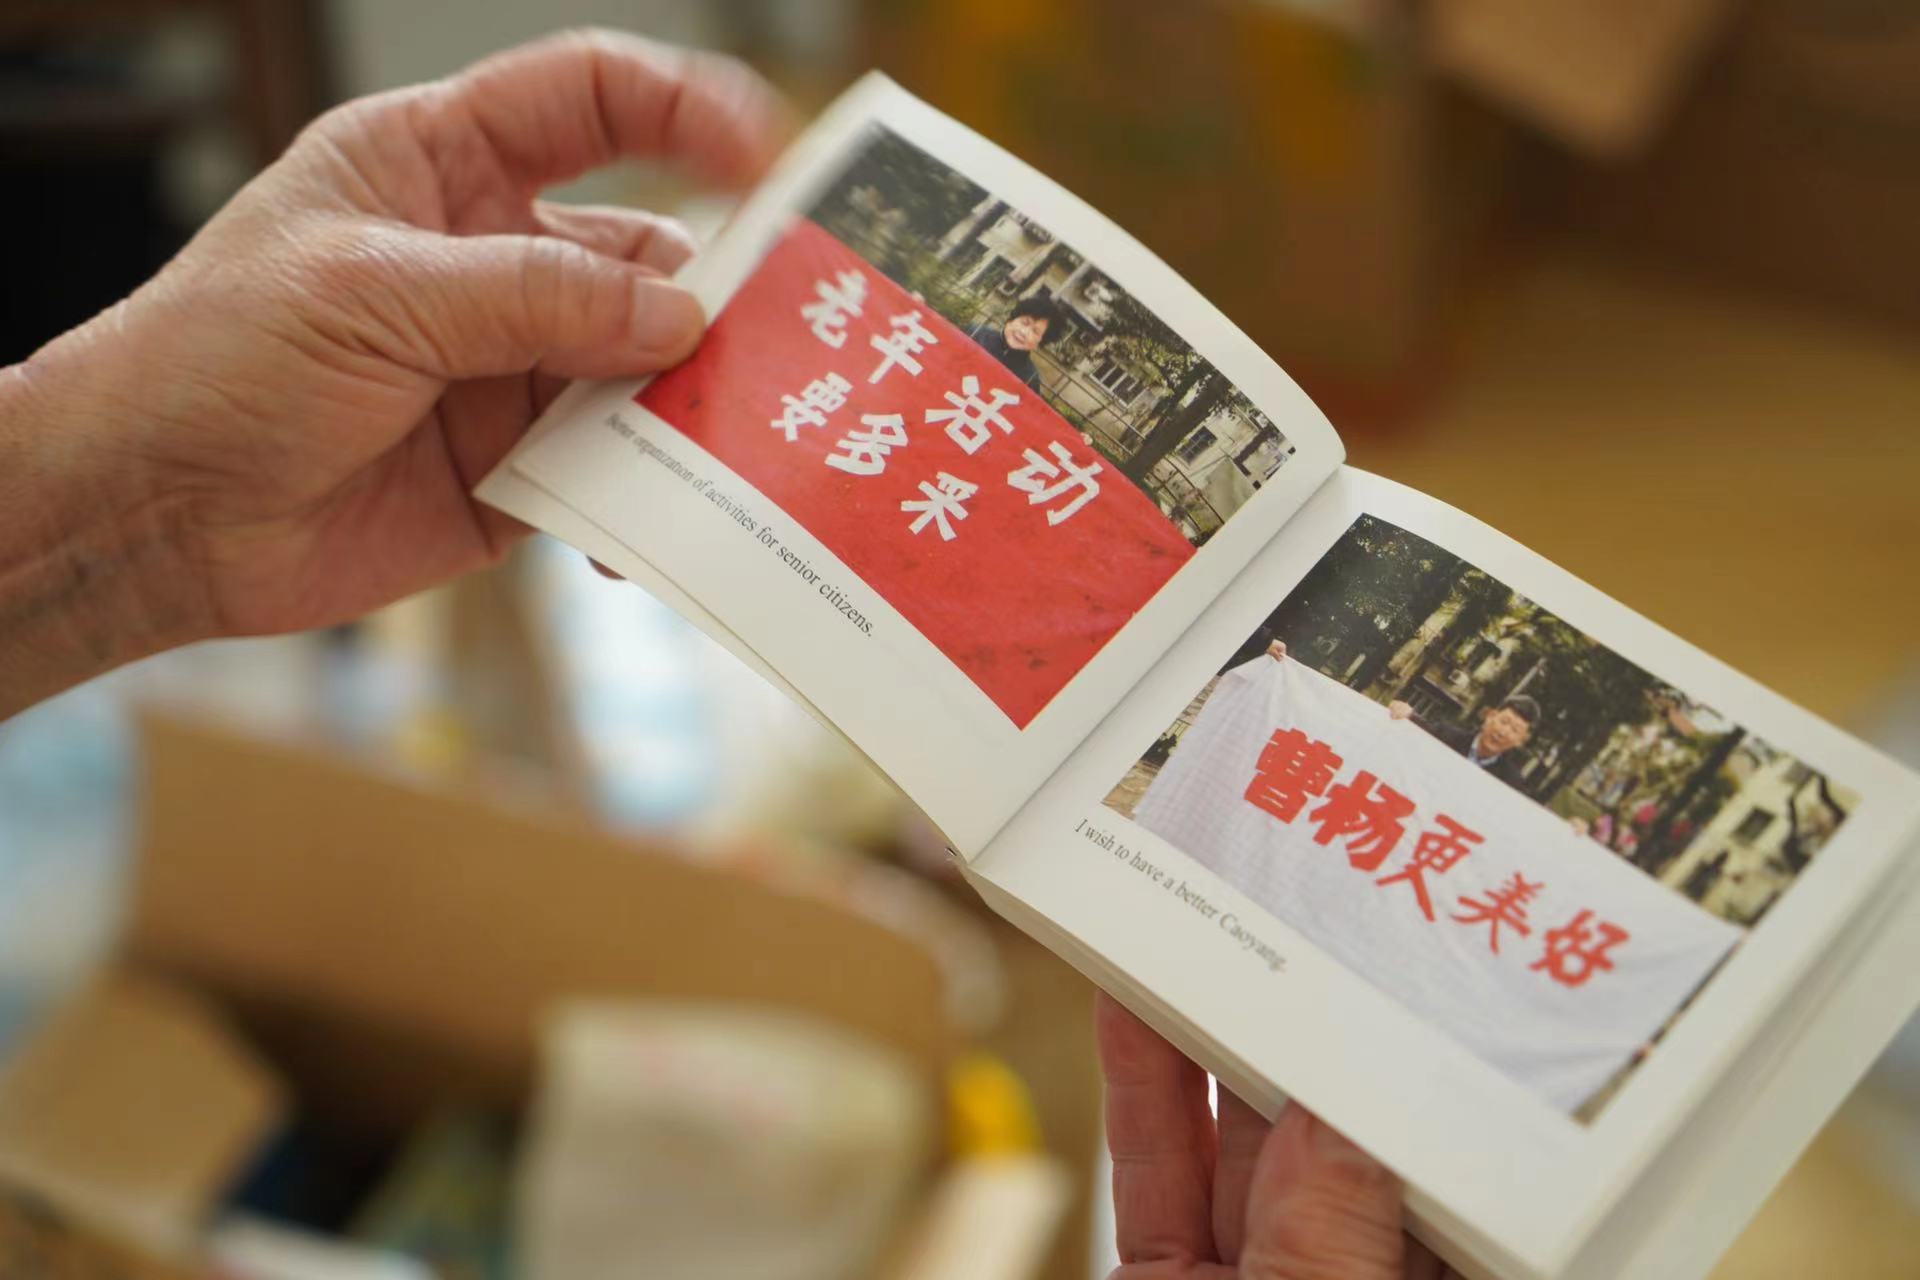 老年活动
要多采
Better organization of activities for senior citizens.
曹杨更美好
I wish to have a better Caoyang.